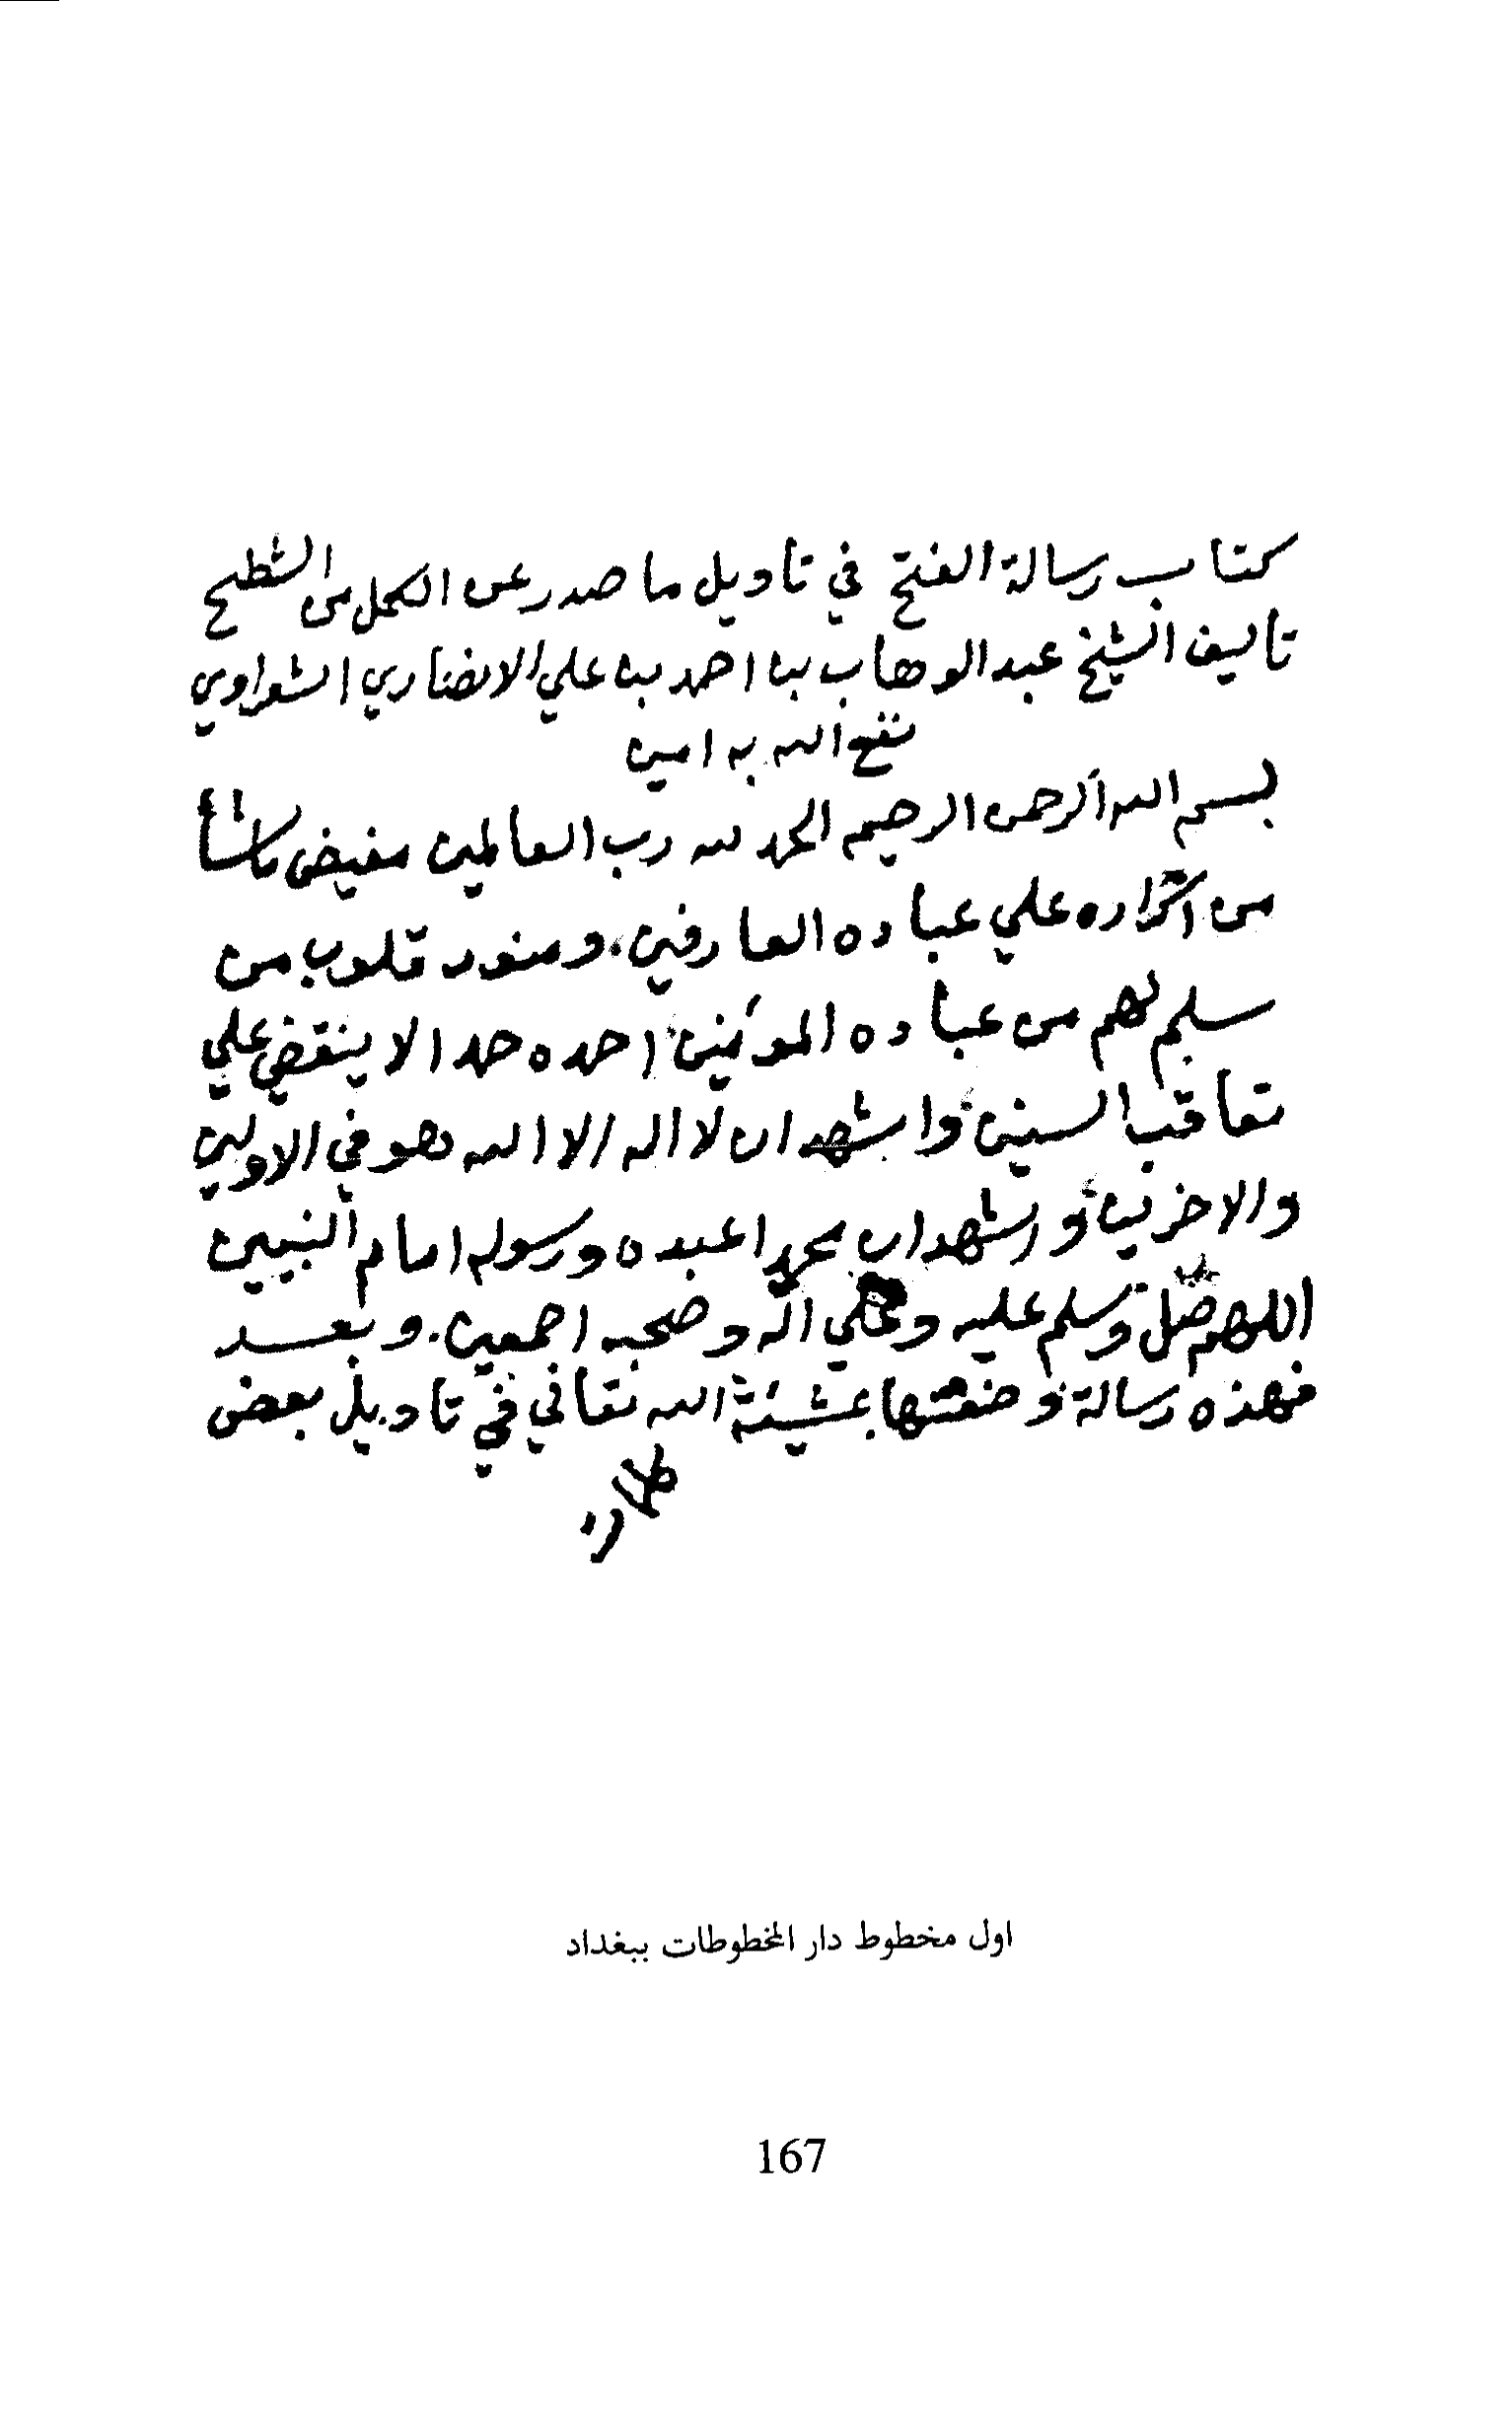 كتاب رسالة الفتح في تاويل ما صدر عن الكمل من الشطح
تاليف الشيخ عبد الوهاب بن احمد بن علي الانصاري الشعراوي
نفع الله به امين
بسم الله الرحمن الرحيم الحمد لله رب العالمين مفيض ما شأ
من اسراره علي عباده العارفين، ومنور قلوب من
سلم لهم من عباده المومنين احمده حمدا لا ينقضي علي
تعاقب السنين واشهد ان لا اله الا الله هو في الاولين
والاخرين واشهد ان محمدا عبده ورسوله امام النبيين
اللهم صل وسلم عليه وعلي اله وصحبه اجمعين. وبعد
فهذه رسالة وضعتها بمشيئة الله تعالي في تاويل بعض
اول مخطوط دار المخطوطات ببغداد
167